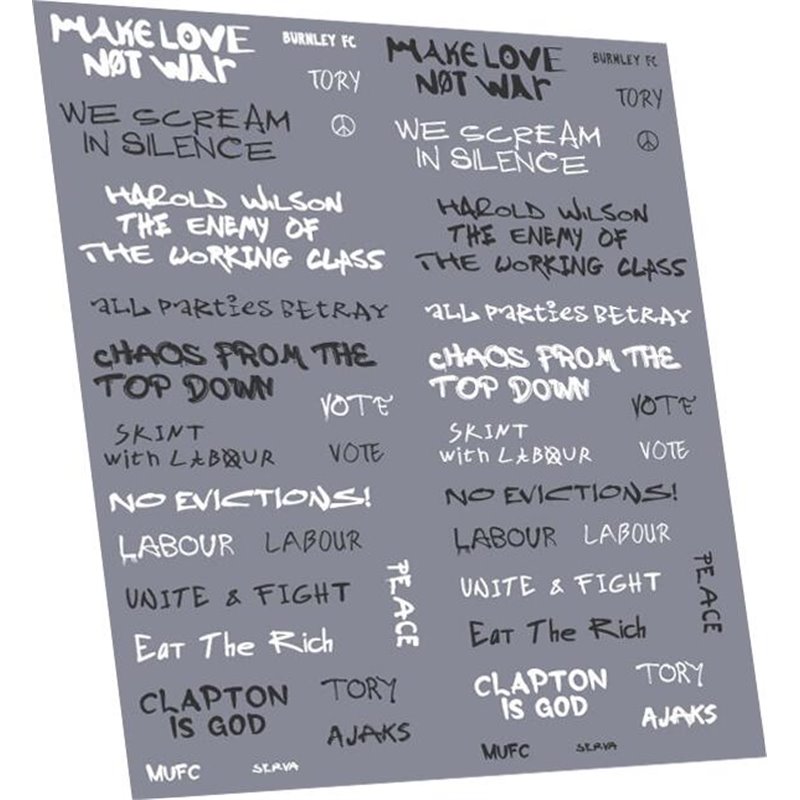 MAKE LOVE
NØT WAr
BURNLEY FC
TORY
WE SCREAM
IN SILENCE
HAROLD WiLSON
THE ENEMY OF
THE WORKING CLASS
aLL ParTies BETRAY
CHAOS FROM THE
TOP DOWN
VOTE
SKINT
with LABOUR
VOTE
NO EVICTIONS!
LABOUR
LABOUR
UNITE & FIGHT
PEACE
EaT The Rich
CLAPTON
IS GOD
TORY
AJAKS
MUFC
SERVA
MAKE LOVE
NØT WAr
BURNLEY FC
TORY
WE SCREAM
IN SILENCE
HAROLD WiLSON
THE ENEMY OF
THE WORKING CLASS
aLL ParTies BETRAY
CHAOS FROM THE
TOP DOWN
VOTE
SKINT
with LABOUR
VOTE
NO EVICTIONS!
LABOUR
LABOUR
UNITE & FIGHT
PEACE
EaT The Rich
CLAPTON
IS GOD
TORY
AJAKS
MUFC
SERVA